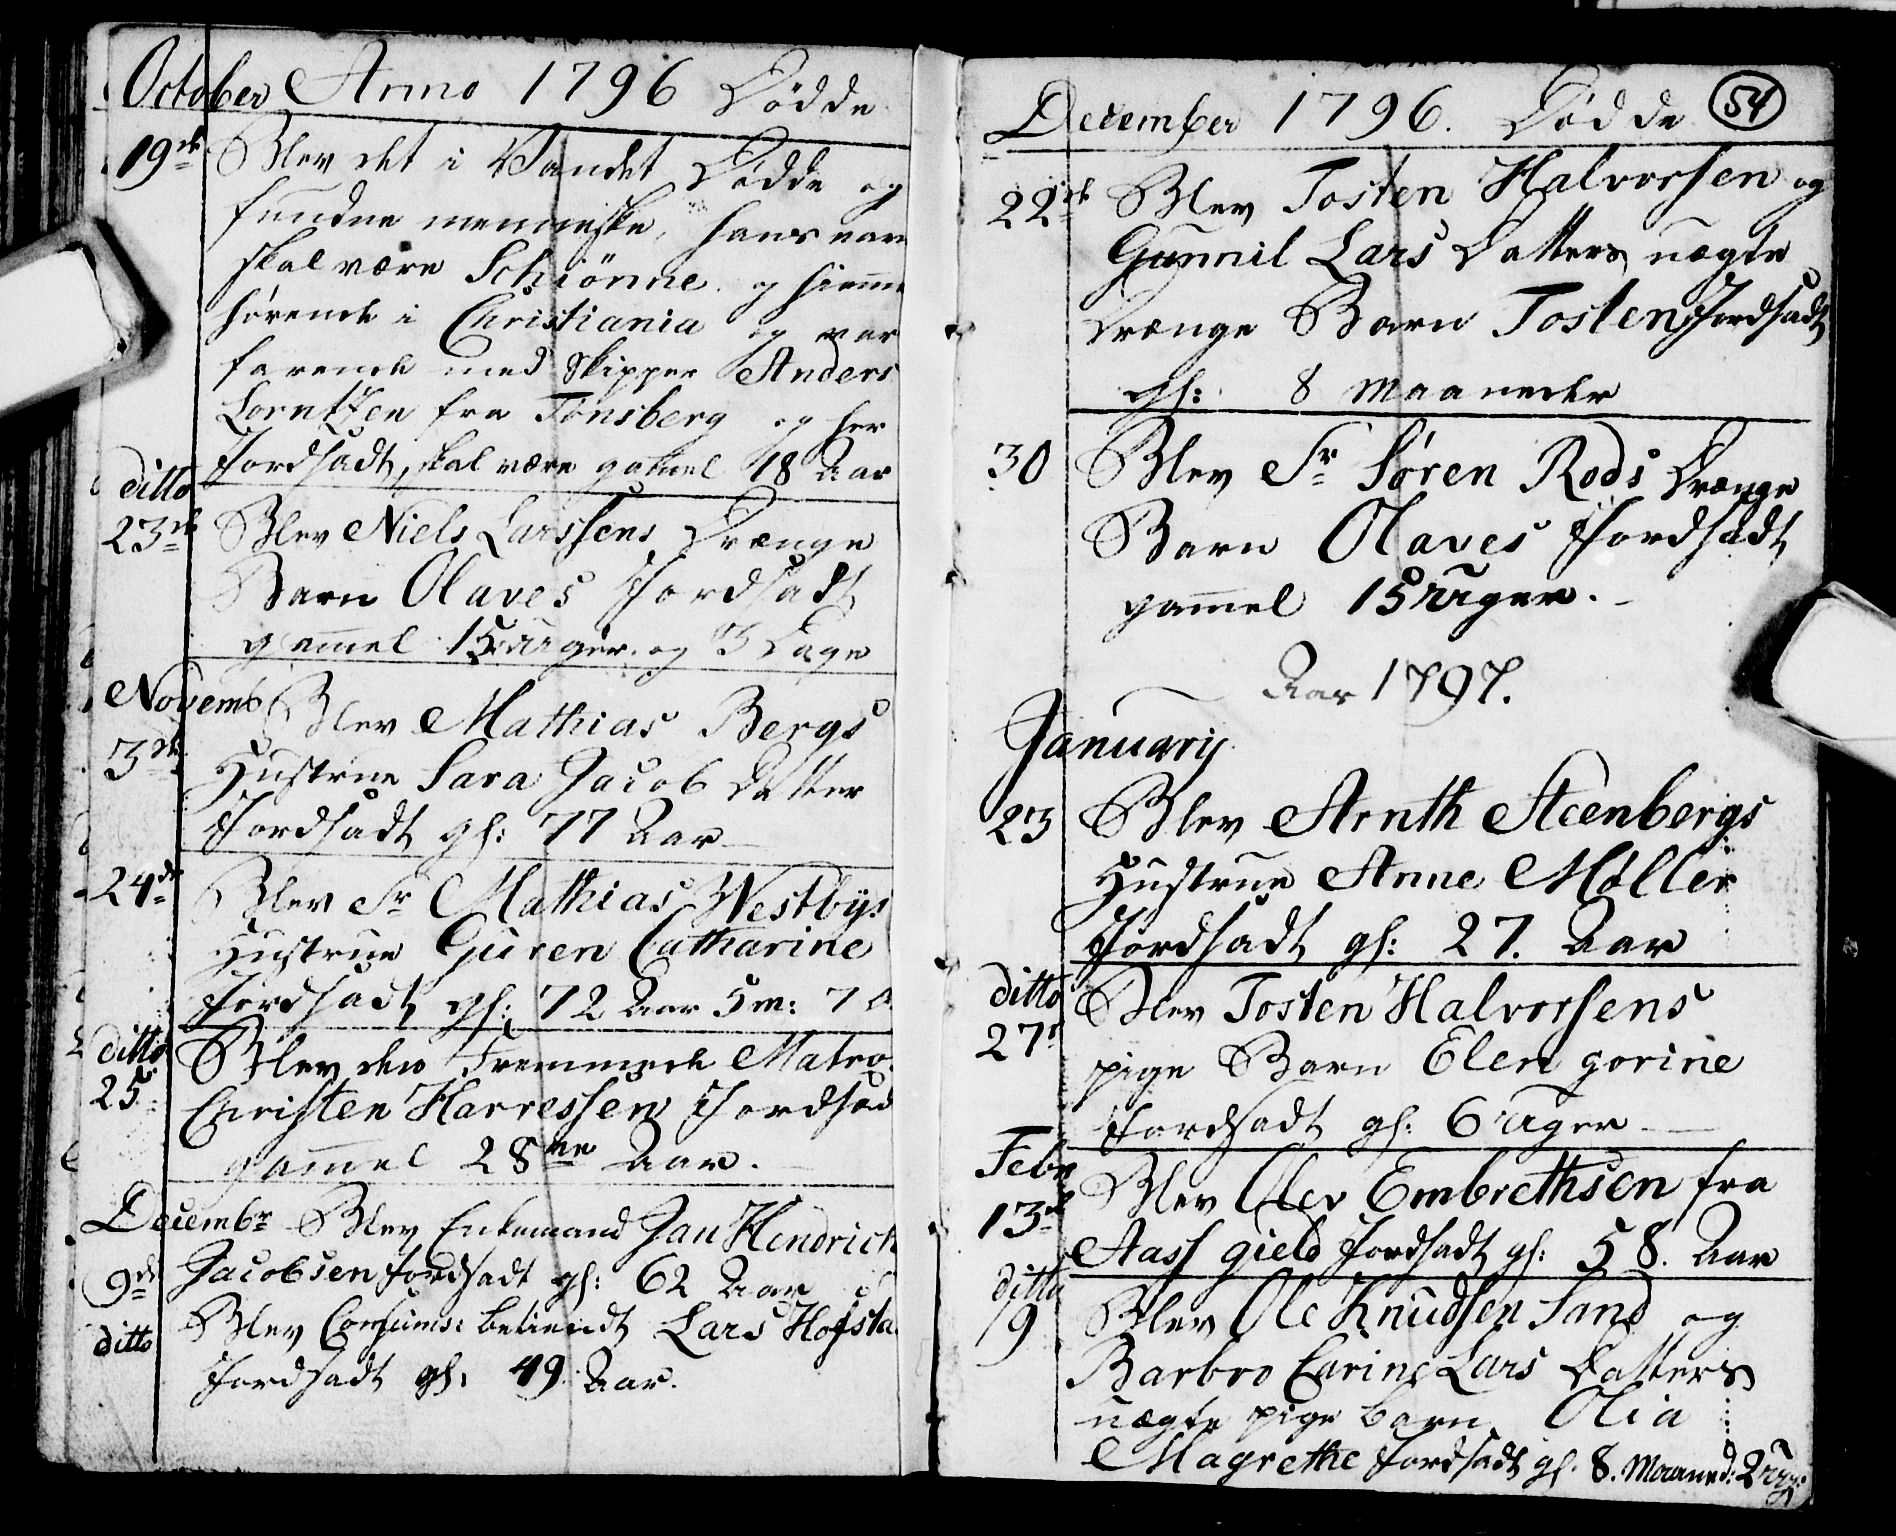 October Anno 1796 Dødde
19de Blev det i Vandet Dødde og
fundne menneske, hans navn
skal være Schiönne og hiemme
hørende i Christiania og var
farende med Skipper Anders
Lorntzen fra Tønsberg og her
Jordsadt, skal være gamel 18 Aar
ditto
23de Blev Niels Larssens Drænge
Barn Olaves Jordsadt
gammel 15 uger og 3 Dage
Novemb Blev Mathias Bergs
3de Hustrue Sara Jacob Datter
Jordsadt gl: 77 Aar
24de Blev Sr Mathias Westbÿs
Hustrue Guren Catharine
Jordsadt gl: 72 Aar 5 m: 7 D
ditto Blev den Fremmede Matro
25 Christen Harressen Jordsad
gam̄el 28ve Aar.
Decembr Blev Enkemand Jan Hendrich
9de Jacobsen Jordsadt gl: 62 Aar
ditto Blev Consums: betiendt Lars Hofsta
Jordsadt gl: 49 Aar.
December 1796. Dødde 54
22de Blev Tosten Halvorsen og
Gunnil Lars Datters uægte
Drænge Barn Tosten Jordsadt
gl: 8 Maaneder
30 Blev Sr Søren Rods Drænge
Barn Olaves Jordsadt
gam̄el 15 uger.
Aar 1797.
Januarij
23 Blev Arnth Steenbergs
Hustrue Anne Møller
Jordsadt gl: 27. Aar
ditto Blev Tosten Halvorsens
27d pige Barn Elen gorine
Jordsadt gl: 6 uger
Febr Blev Olev Embrethsen fra
13de Aass gield Jordsadt gl: 58. Aar
ditto
19 Blev Ole Knudsen Sand og
Barbro Carine Lars Datters
uægte pige barn Olia
Magrethe Jordsadt gl. 8. Maaned: 2 ug: